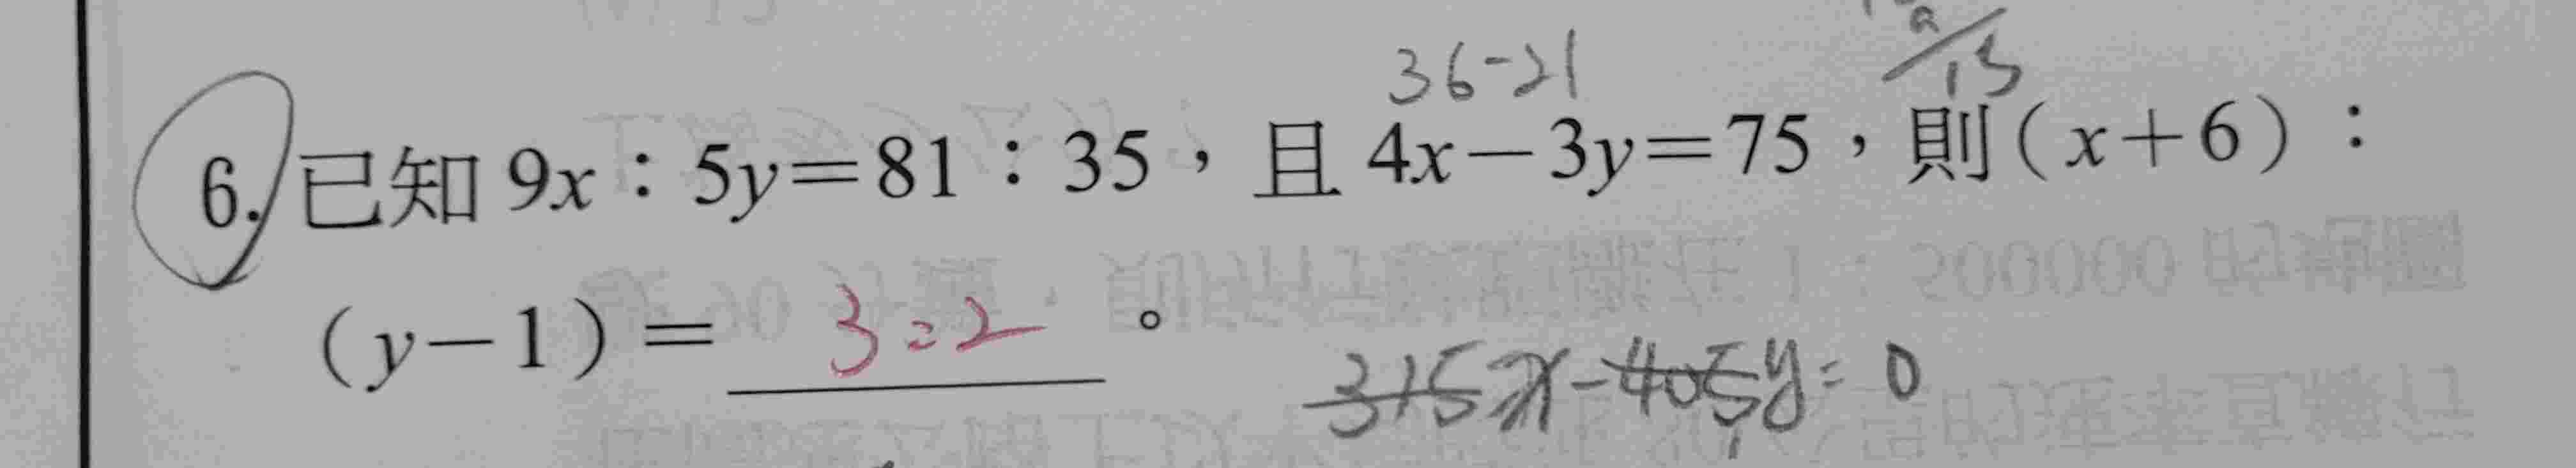 36-21
6. 已知 9x：5y=81：35，且 4x-3y=75，則(x+6)：
(y-1)= 3:2 。
315x-405y=0